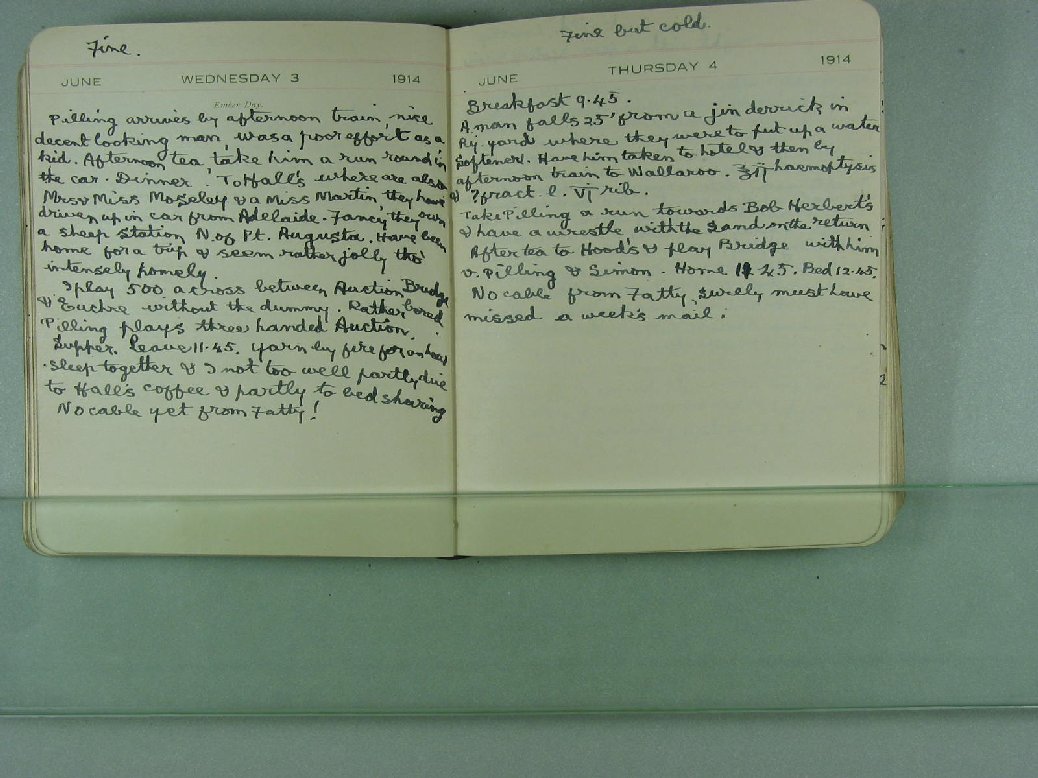 Fine.
JUNE WEDNESDAY 3 1914
Ember Day.
Pilling arrives by afternoon train, nice
decent looking man, was a poor effort as a
kid. Afternoon tea, take him a run round in
the car. Dinner. To Hall's where are also
Mrs & Miss Moseley & a Miss Martin, they have
driven up in car from Adelaide. Fancy they own
a sheep station N. of Pt. Augusta. Have been
home for a trip & seem rather jolly tho'
intensely homely.
I play 500 a cross between Auction Bridge
& Euchre without the dummy. Rather bored
Pilling plays three handed Auction.
Supper. Leave 11.45. Yarn by fire for an hour
sleep together & I not too well partly due
to Hall's coffee & partly to bed sharing
No cable yet from Fatty!
Fine but cold.
JUNE THURSDAY 4 1914
Breakfast 9.45.
A man falls 25' from a jin derrick in
Ry. yard where they were to put up a water
softener. Have him taken to hotel & then by
afternoon train to Wallaroo. ℥ii haemoptysis
& ? fract l. VI rib.
Take Pilling a run towards Bob Herbert's
& have a wrestle with the sand on the return
After tea to Hood's & play Bridge with him
v. Pilling & Simon. Home 12.25. Bed 12.45.
No cable from Fatty, surely must have
missed a week's mail.